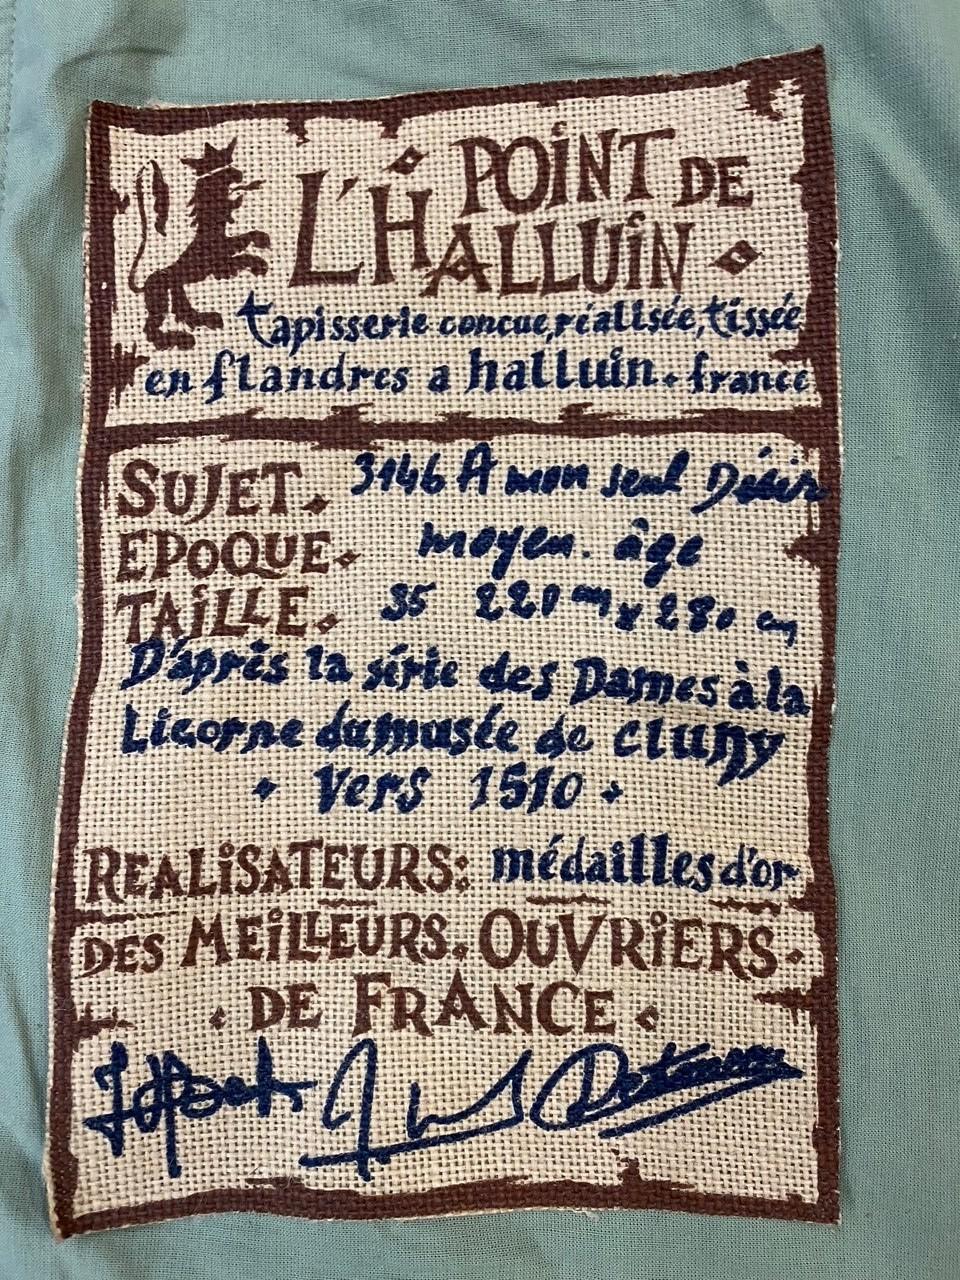 POINT DE
L'HALLUIN
tapisserie concue, réalisée, tissée
en flandres a halluin. france
SUJET. 3146 A mon seul Désir
EPOQUE. moyen. âge
TAILLE. 35 220 cm x 280 cm
D'après la série des Dames à la
Licorne du musée de Cluny
Vers 1510
REALISATEURS: médailles d'or
DES MEILLEURS. OUVRIERS.
DE FRANCE